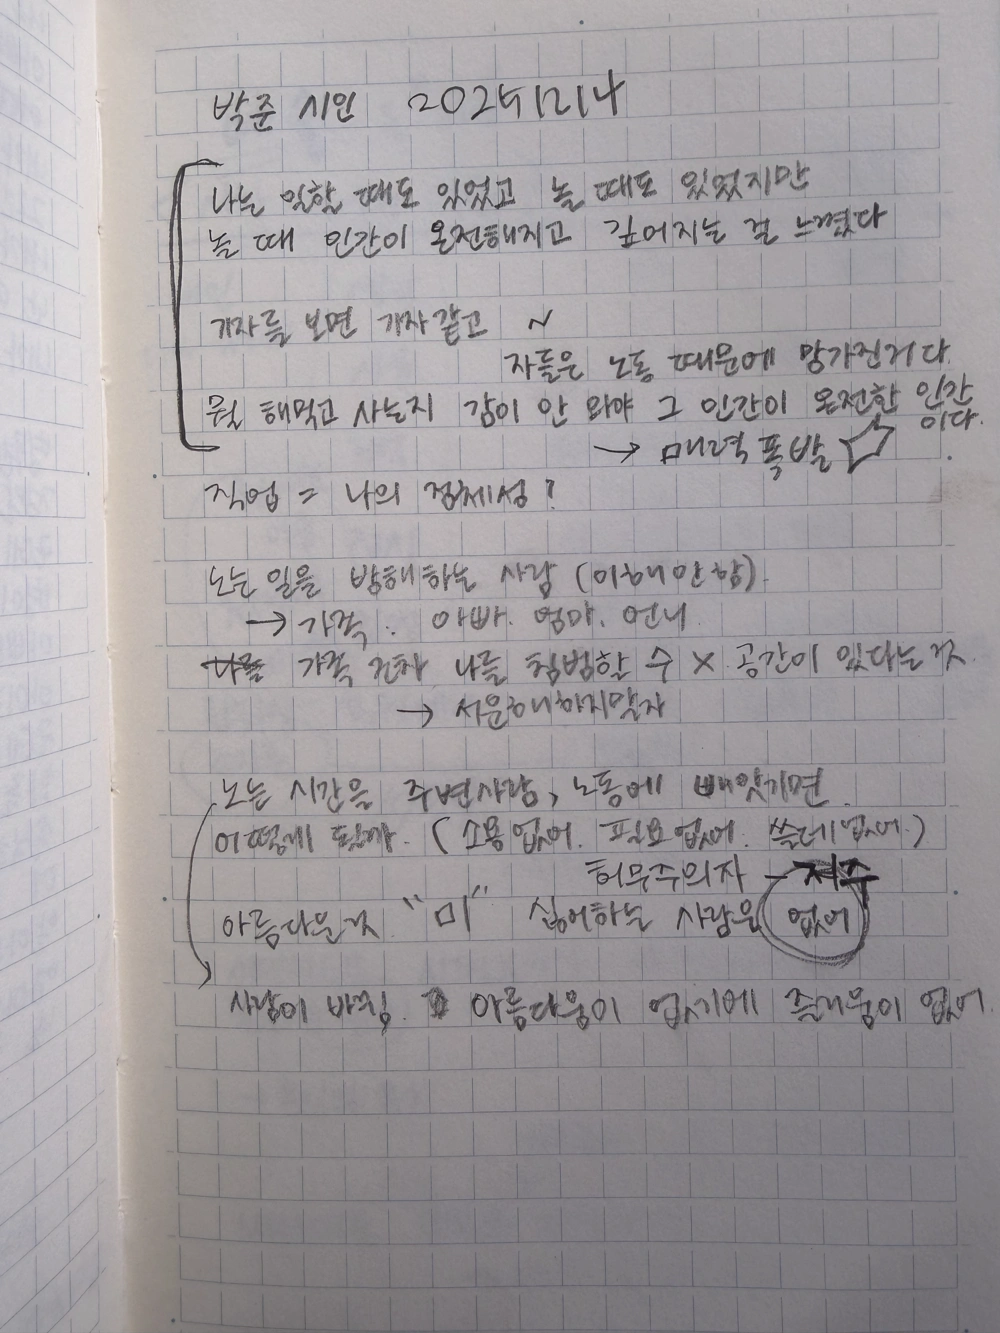 박준 시인 20251214
나는 일할 때도 있었고 놀 때도 있었지만
놀 때 인간이 온전해지고 깊어지는 걸 느꼈다
기자를 보면 기자같고 ~
자들은 노동 때문에 망가진거다.
뭘 해먹고 사는지 감이 안 와야 그 인간이 온전한 인간
이다.
→ 매력 폭발 ☆
직업 = 나의 정체성?
노는 일을 방해하는 사람 (이해안함)
→ 가족. 아빠. 엄마. 언니
가족 조차 나를 침범할 수 × 공간이 있다는 것
→ 서운해하지말자
노는 시간을 주변사람, 노동에 빼앗기면
어떻게 될까. (소용없어. 필요없어. 쓸데없어.)
허무주의자 - 저주
아름다운것 "미" 싫어하는 사람은 없어
사람이 바뀜. 아름다움이 없기에 즐거움이 없어.